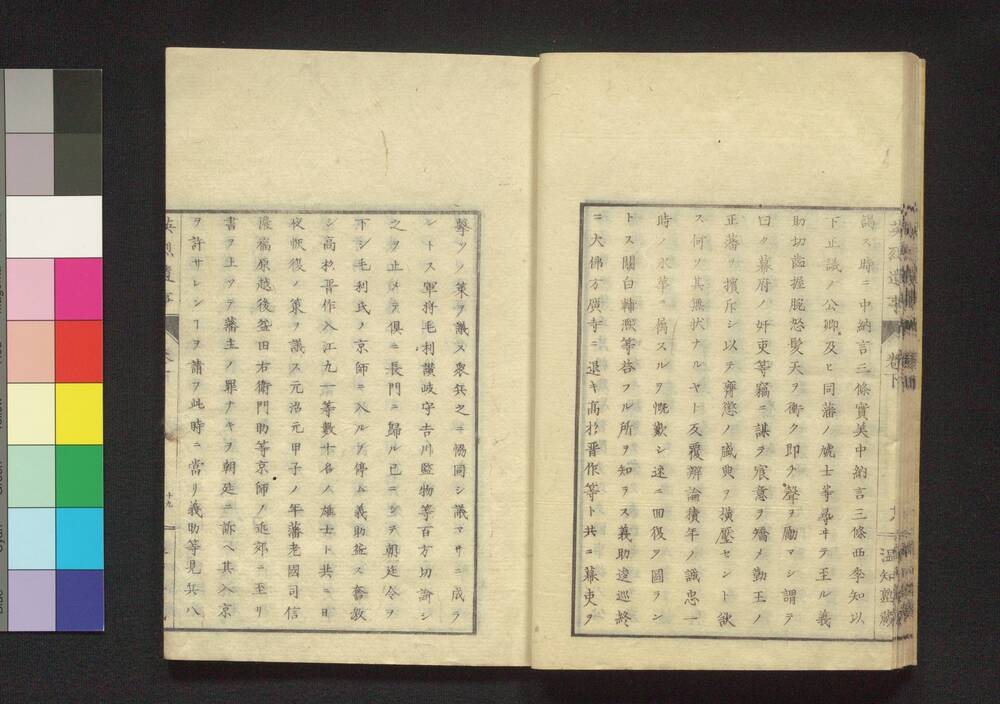 英烈遺事 卷下
温知塾藏
謁ス時ニ中納言三條實美中納言三條西季知以
下正議ノ公卿及ヒ同藩ノ處士等尋ヰテ至ル義
助切齒握腕怒髮天ヲ衝ク即ヲ聲ヲ勵マシ謂テ
曰ク幕府ノ奸吏等竊ニ謀ヲ宸意ヲ矯メ勤王ノ
正藩ヲ擯斥シ以テ膺懲ノ盛典ヲ横壓セント欲
ス何ソ其無状ナルヤト反覆辯論積年ノ識忠一
時ノ水華ニ屬スルヲ慨歎シ速ニ回復ヲ圖ラン
トス關白輔熈等答フル所ヲ知ラス義助逡巡終
ニ大佛方廣寺ニ退キ高杉晋作等ト共ニ幕吏ヲ
擊ツノ策ヲ議ス衆兵之ニ恊同シ議マサニ成ラ
ントス軍将毛利讃岐守吉川監物等百方切諭シ
之ヲ止メテ倶ニ長門ニ歸ル已ニシテ朝廷令ヲ
下シ毛利氏ノ京師ニ入ルヲ停ム義助益ス奮激
シ高杉晋作入江九一等數十名ノ雄士ト共ニ日
夜恢復ノ策ヲ議ス元治元甲子ノ年藩老國司信
濃福原越後益田右衛門助等京師ノ近郊ニ至リ
書ヲ上ツテ藩主ノ罪ナキヲ朝廷ニ訴ヘ其入京
ヲ許サレンヿヲ請フ此時ニ當リ義助等見兵八
英烈遺事
十九